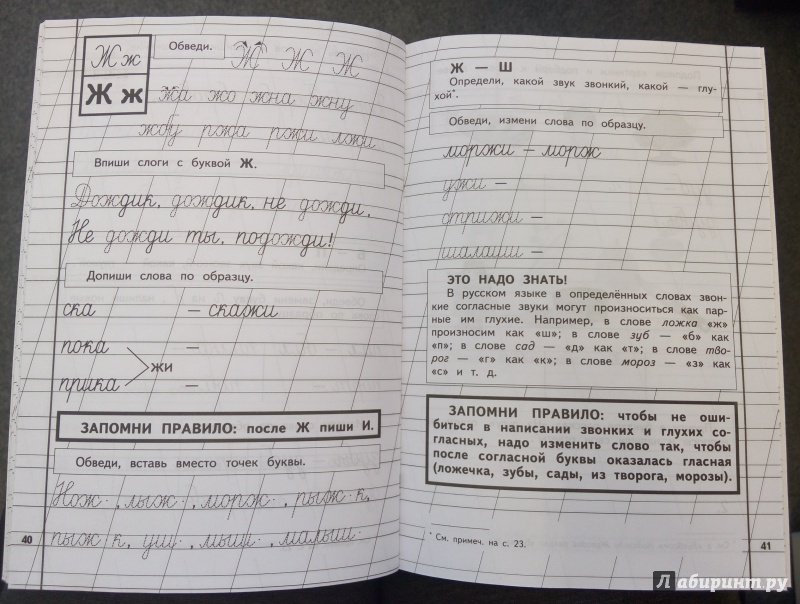 Ж ж
Обведи.
Ж Ж Ж
Ж ж
жа жо жна жну
жду ржа ржи лжи
Впиши слоги с буквой Ж.
Дождик, дождик, не дожди,
Не дожди ты, подожди!
Допиши слова по образцу.
ска – скажи
пока –
жи
прика –
ЗАПОМНИ ПРАВИЛО: после Ж пиши И.
Обведи, вставь вместо точек буквы.
Нож·, лыж·, морж·, пыж·к,
пыж·к, уш·, мыш·, малыш·
40
Ж — Ш
Определи, какой звук звонкий, какой — глу-
хой*.
Обведи, измени слова по образцу.
моржи – морж
ужи –
стрижи –
шалаши –
ЭТО НАДО ЗНАТЬ!
В русском языке в определённых словах звон-
кие согласные звуки могут произноситься как пар-
ные им глухие. Например, в слове ложка «ж»
произносим как «ш»; в слове зуб — «б» как
«п»; в слове сад — «д» как «т»; в слове тво-
рог — «г» как «к»; в слове мороз — «з» как
«с» и т. д.
ЗАПОМНИ ПРАВИЛО: чтобы не оши-
биться в написании звонких и глухих со-
гласных, надо изменить слово так, чтобы
после согласной буквы оказалась гласная
(ложечка, зубы, сады, из творога, морозы).
* См. примеч. на с. 23.
41
Лабиринт.ру